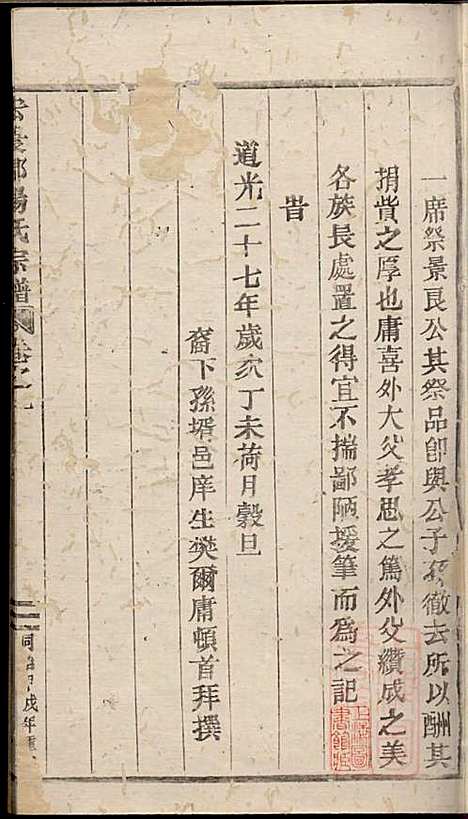 一席祭景良公其祭品卽與公子孫徹去所以酬其
捐貲之厚也庸喜外大父孝思之篤外父纘成之美
各族長處置之得宜不揣鄙陋援筆而爲之記
旹
道光二十七年歲次丁未荷月穀旦
裔下孫壻邑庠生樊爾庸頓首拜撰
宏農郡楊氏宗譜
同治甲戌年重
上海圖書館藏